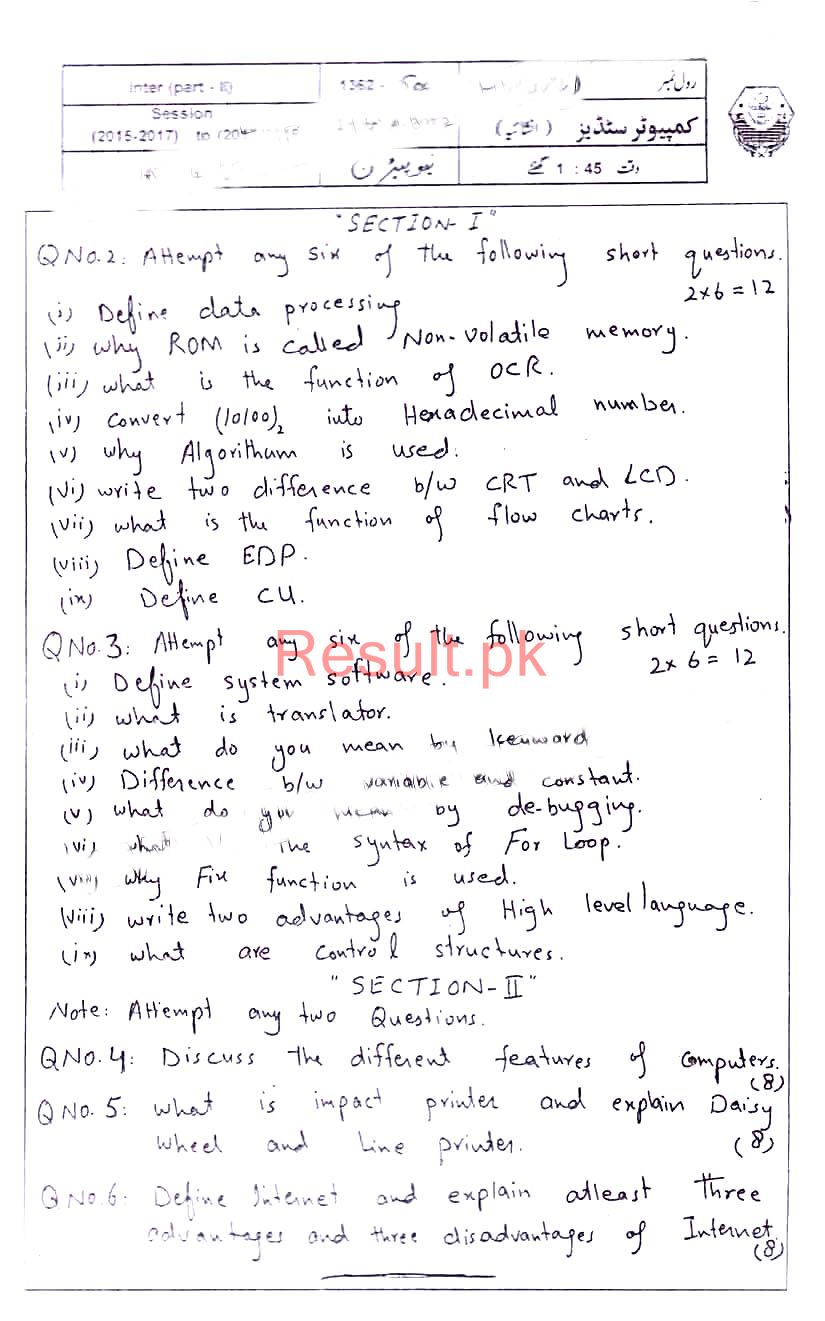 Inter (part - II) 1362 - رول نمبر
Session
(2015-2017) to کمپیوٹر سٹڈیز (انشائیہ)
نیو پیٹرن وقت 1 : 45 گھنٹے
"SECTION- I"
Q No.2: Attempt any six of the following short questions.
2x6 = 12
(i) Define data processing
(ii) why ROM is called Non-volatile memory.
(iii) what is the function of OCR.
(iv) Convert (10100)₂ into Hexadecimal number.
(v) why Algorithum is used.
(vi) write two difference b/w CRT and LCD.
(vii) what is the function of flow charts.
(viii) Define EDP.
(ix) Define CU.
Q No.3: Attempt any six of the following short questions.
2x 6 = 12
Result.pk
(i) Define system software.
(ii) what is translator.
(iii) what do you mean by keyword
(iv) Difference b/w variable and constant.
(v) what do you mean by de-bugging.
(vi) what the syntax of For Loop.
(vii) why Fix function is used.
(viii) write two advantages of High level language.
(ix) what are control structures.
"SECTION-II"
Note: Attempt any two Questions.
Q No.4: Discuss the different features of computers.
(8)
Q No. 5: what is impact printer and explain Daisy
wheel and Line printer. (8)
Q No.6: Define Internet and explain atleast three
advantages and three disadvantages of Internet.
(8)